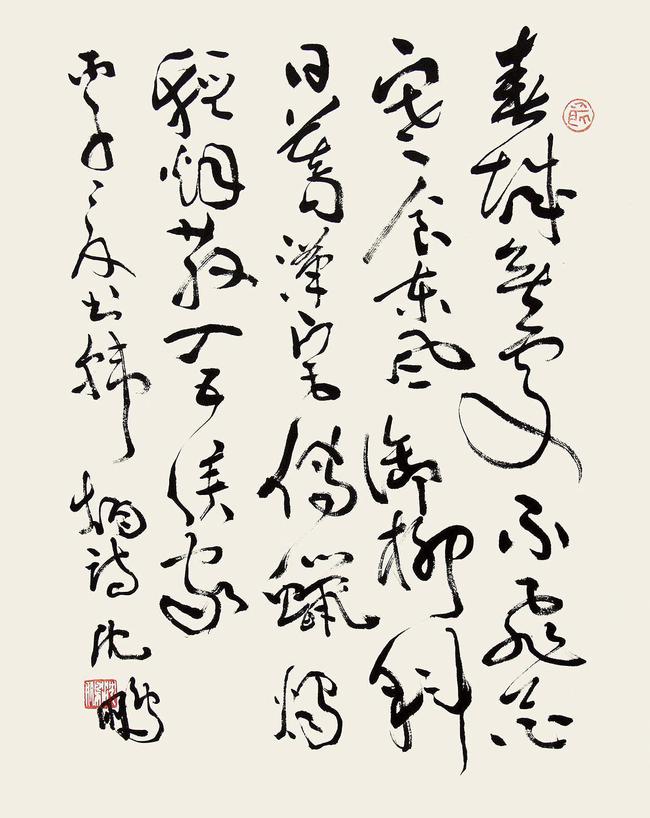 春城無處不飛花
寒食東風御柳斜
日暮漢宮傳蠟燭
輕烟散入五侯家
丙子書韓詩 沈鵬